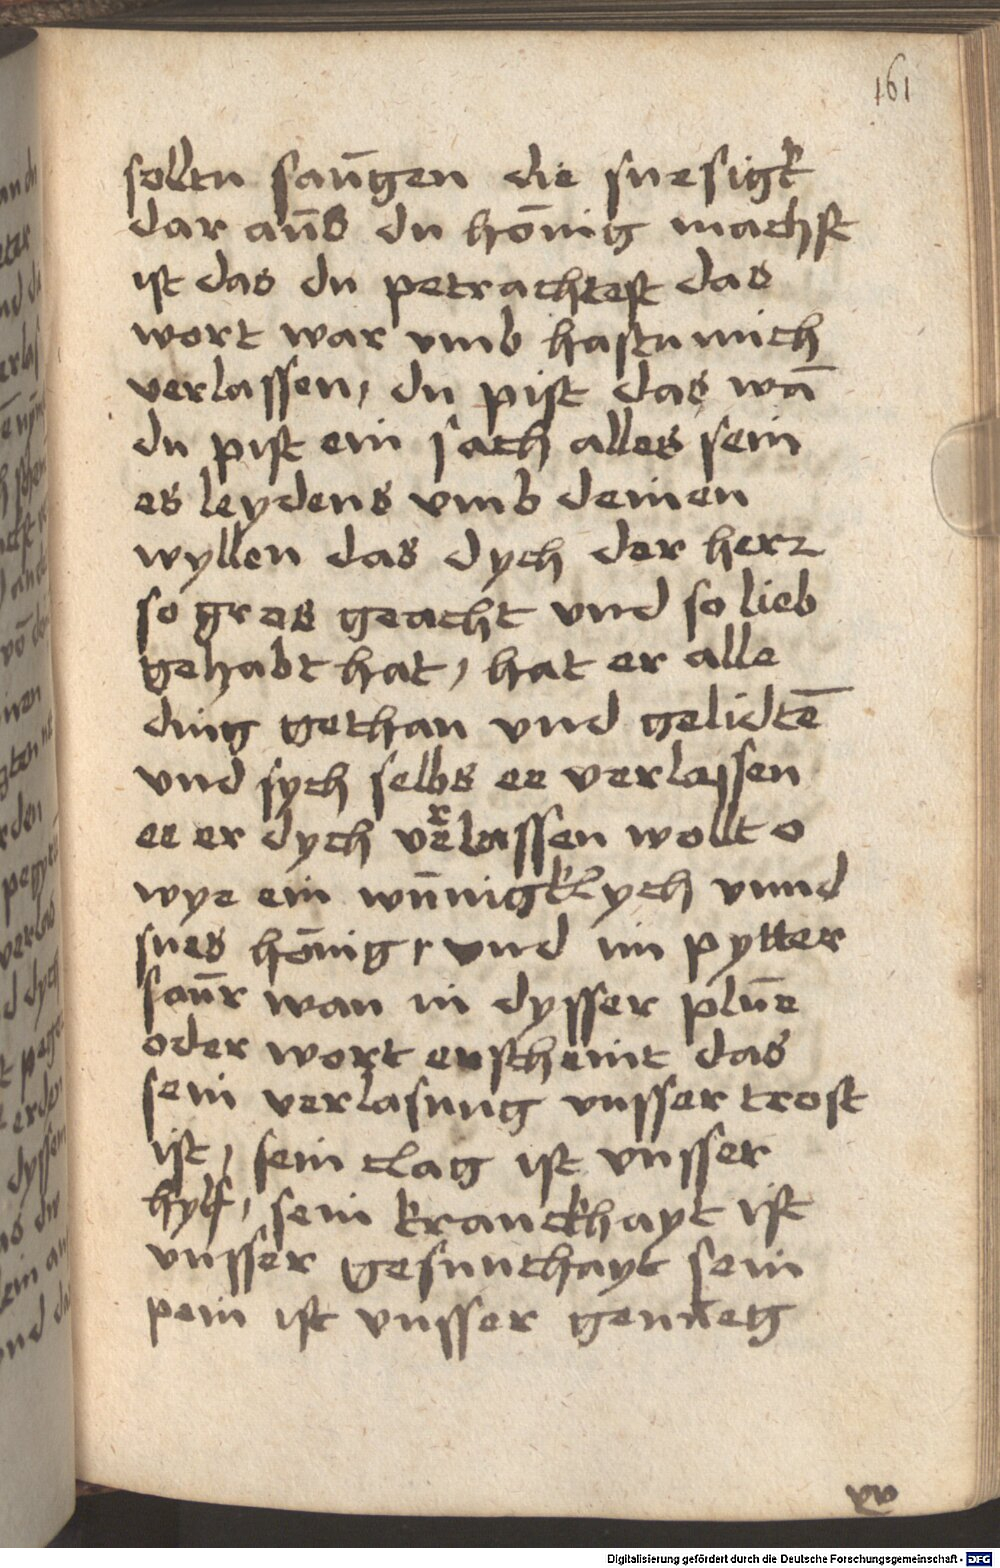 161
soltu saūgen die suesigkͭ
dar aūs du hōnig machst
ist das du petrachtest das
wort war vmb hastu mich
verlassen, du pist das wā
du pist ein sach alles sein
es leydens vmb deinen
wyllen das dych der herr
so gros geacht vnd so lieb
gehabt hat, hat er alle
ding gethan vnd gelidtē
vnd sych selbs ee verlassen
ee er dych verlassen wollt o
wye ein wūnigklych vnnd
sues hōnig, vnd im pytter
saūr wan in dysser plūe
oder wort erscheint das
sein verlasung vnsser trost
ist, sein clag ist vnsser
hylf, sein kranckhayt ist
vnsser gesunthayt sein
pein ist vnsser genueg
Digitalisierung gefördert durch die Deutsche Forschungsgemeinschaft - DFG